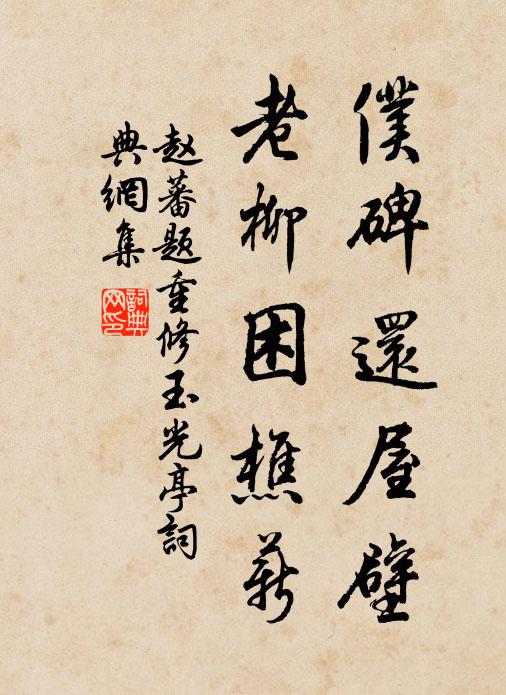 僕碑還屋壁
老柳困樵薪
赵蕃題重修玉光亭詞
典網集
詞典
网印